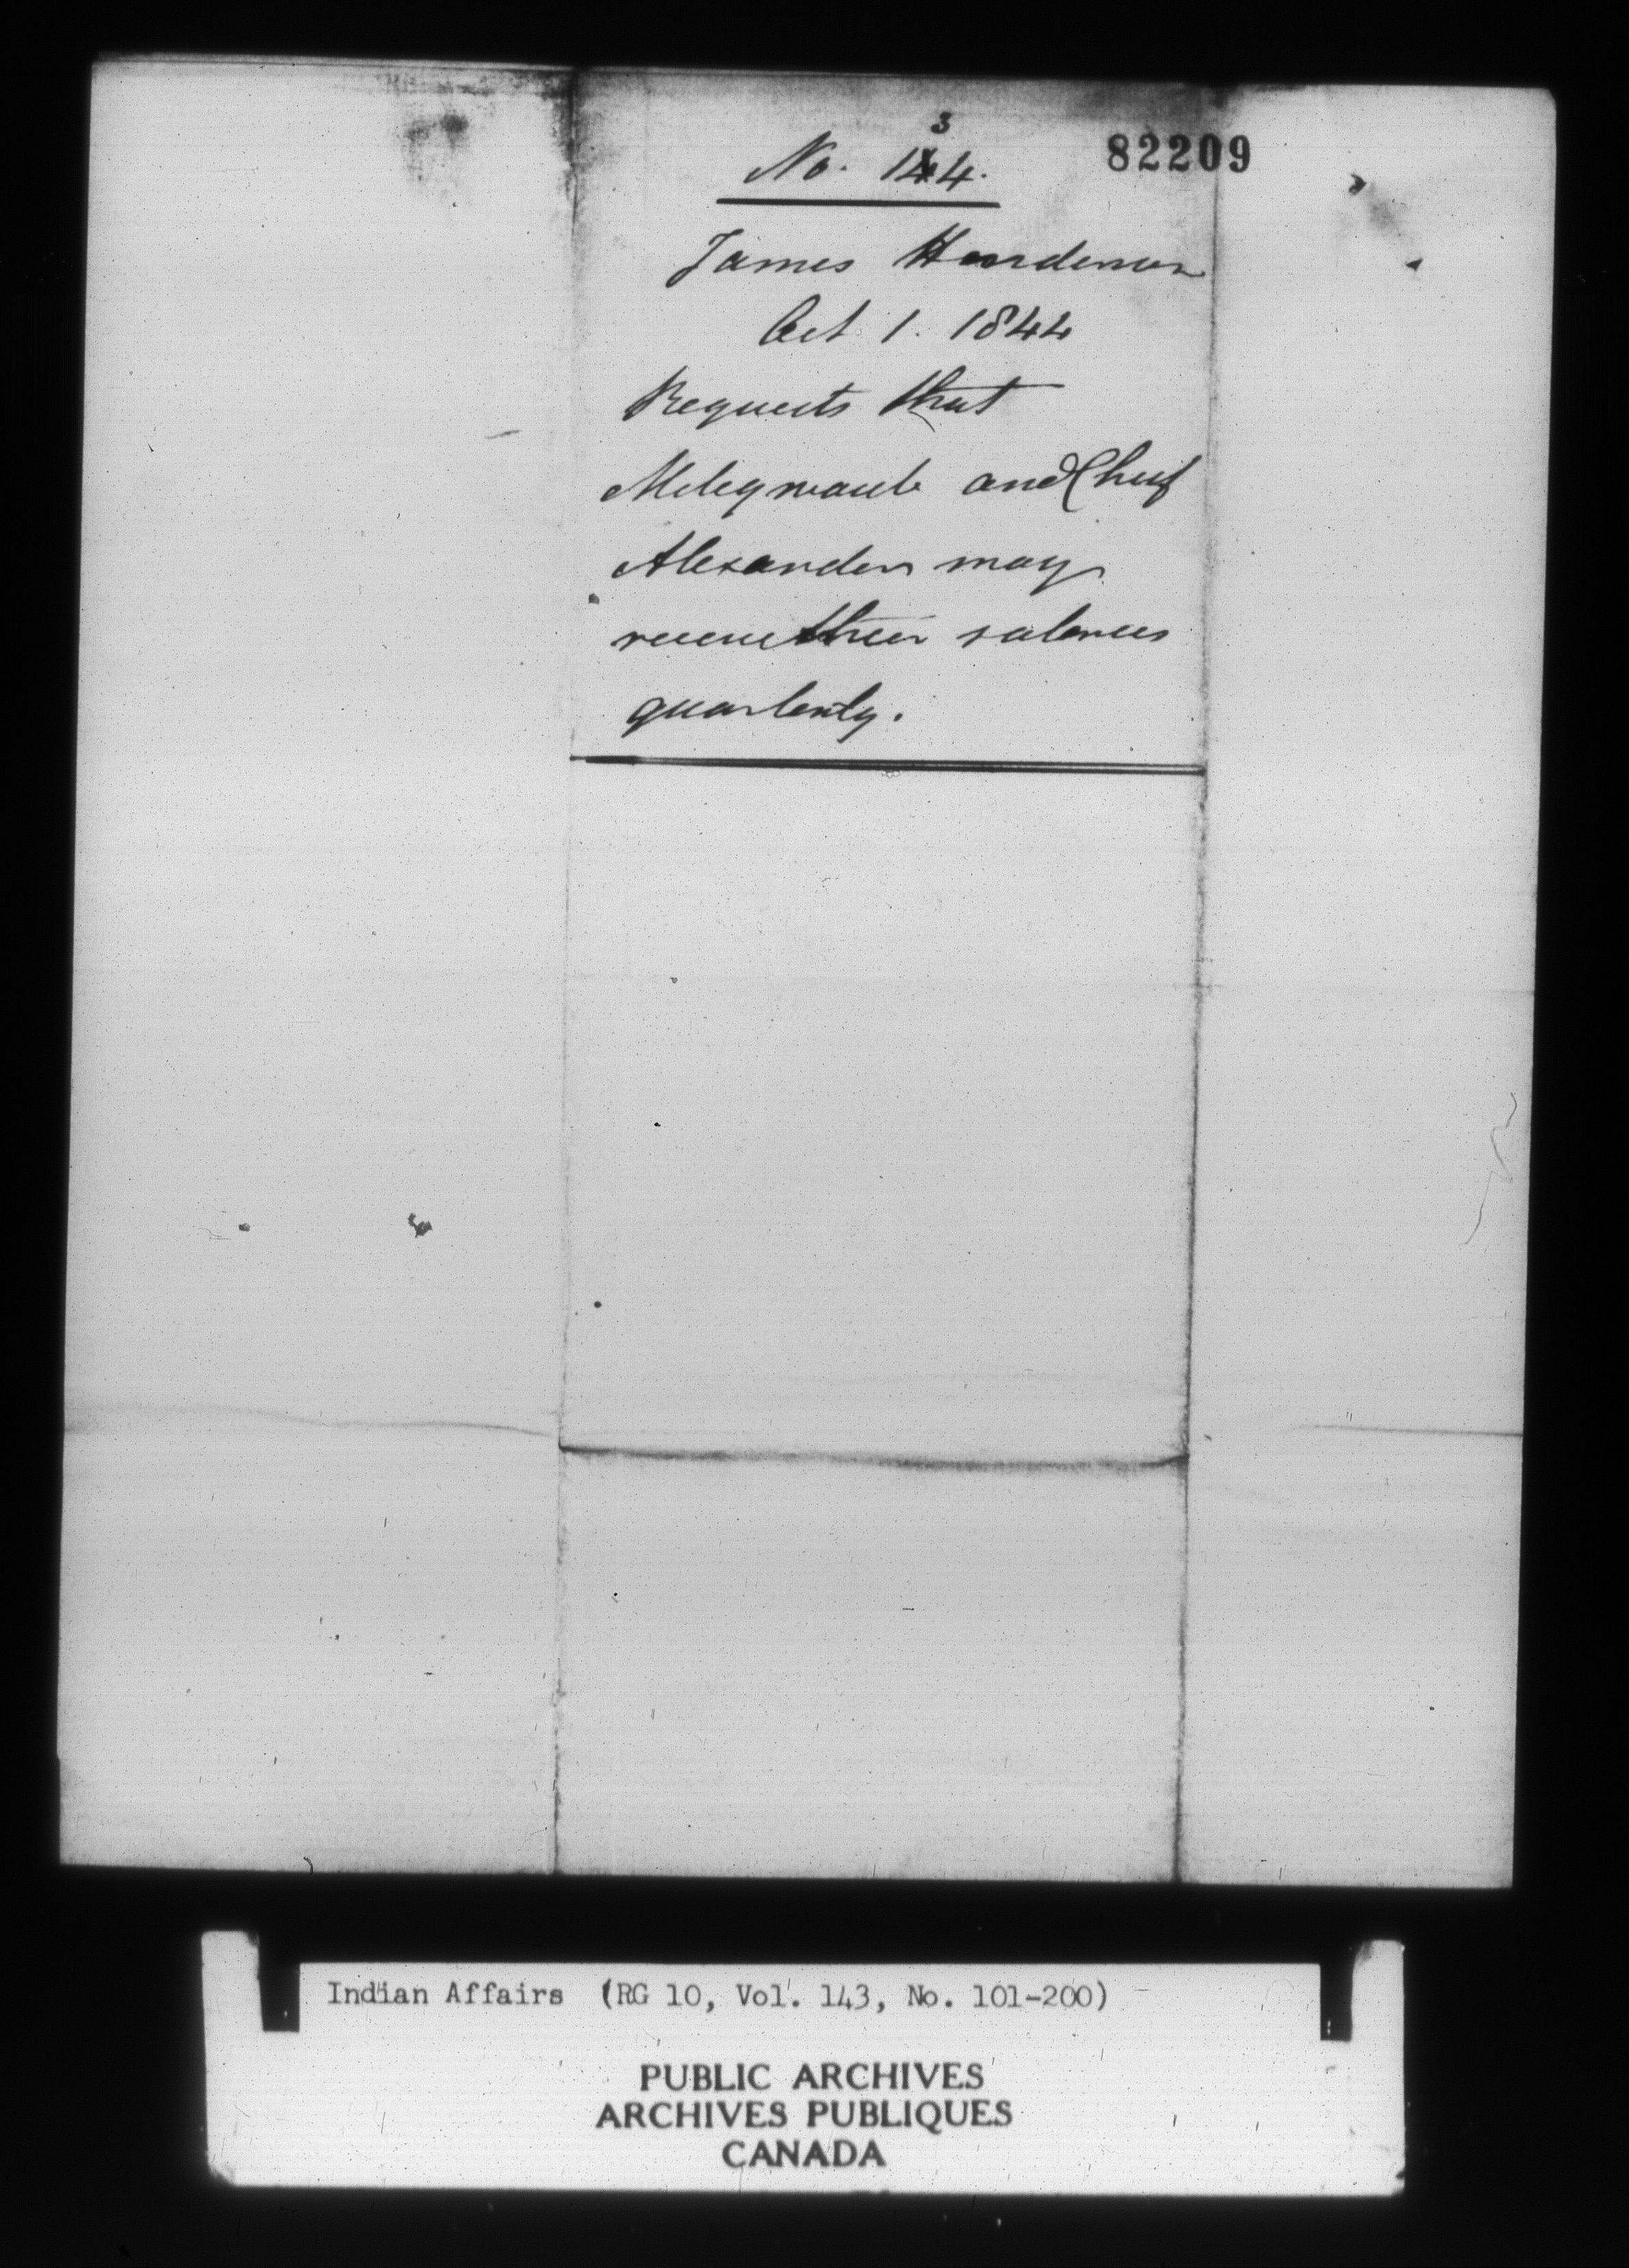 3
No. 144. 82209
James Henderson
Oct 1. 1844
Requests that
and Chief
Alexander may
receive their salaries
quarterly.
Indian Affairs (RG 10, Vol. 143, No. 101-200)
PUBLIC ARCHIVES
ARCHIVES PUBLIQUES
CANADA